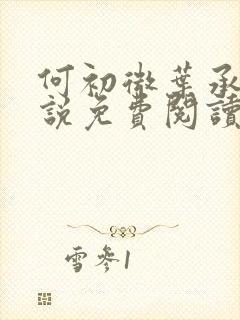 何初微葉承
說免費閱讀
雪參1